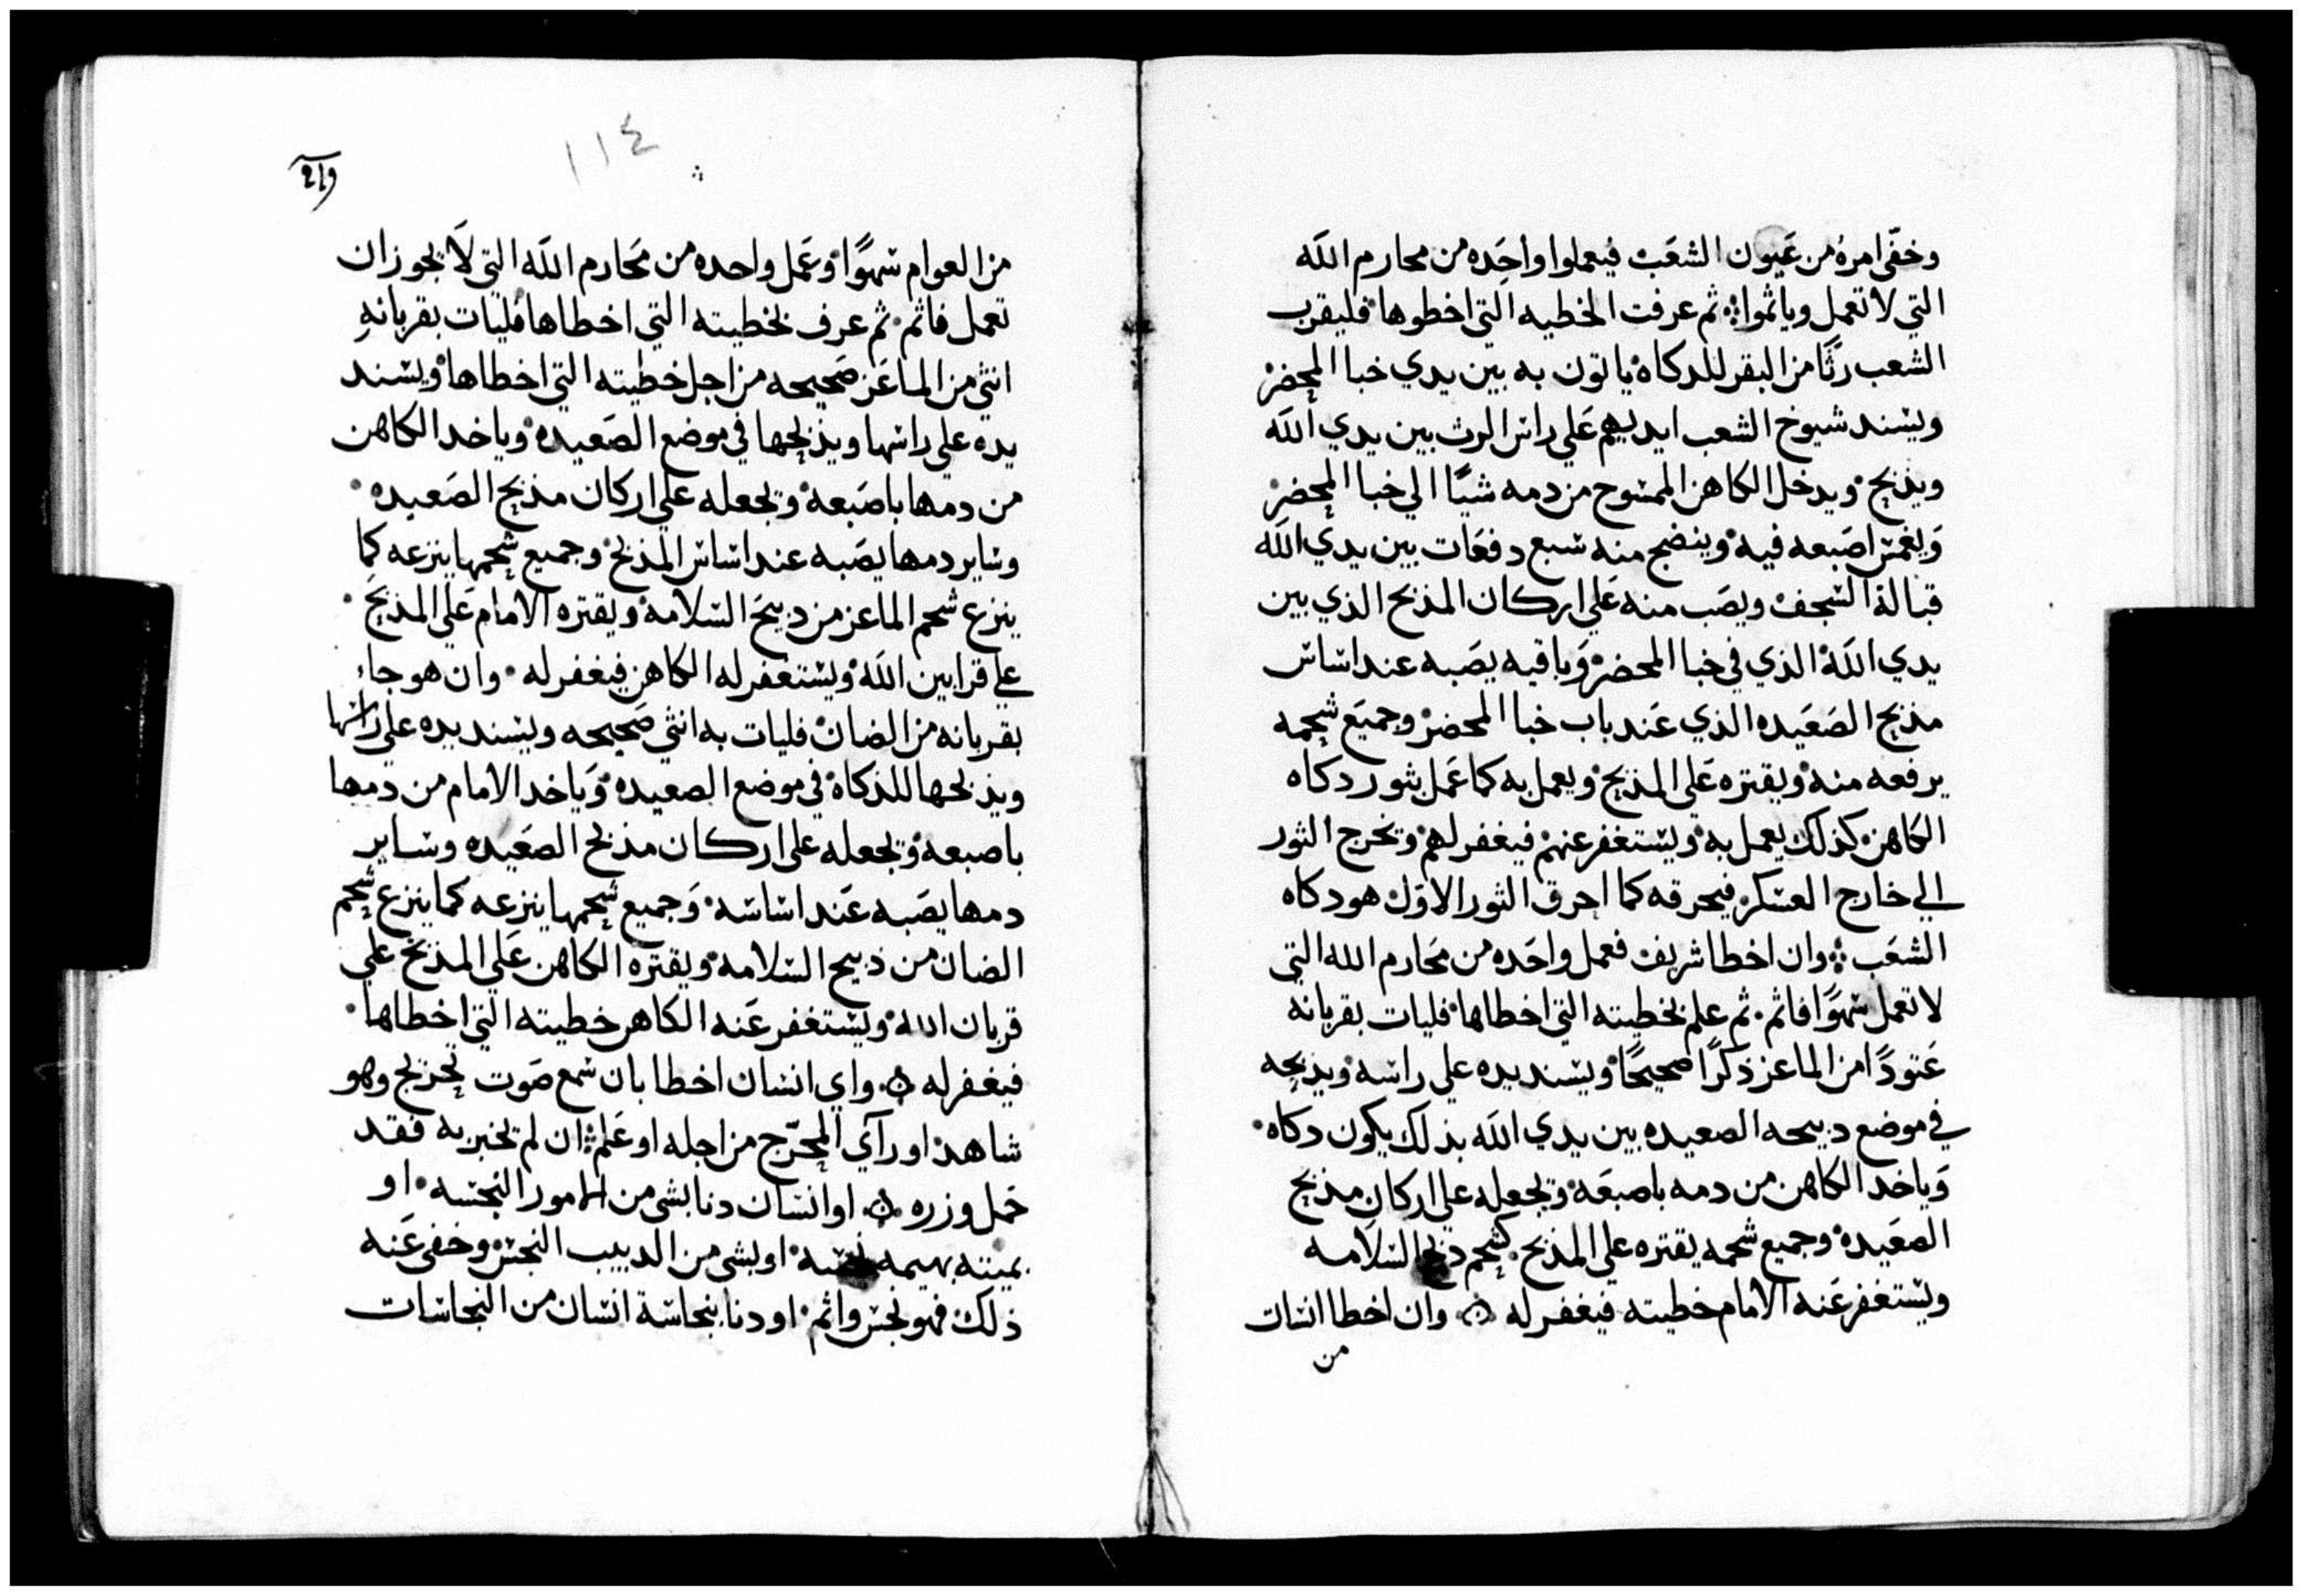 وخفّى امره من عَيون الشعَب فيعملوا واَحِده من محارم اللَه
التي لا تعمل وياثموا ثم عرفت الخطيه التي اخطوها فليقرب
الشعب رثًا من البقر للدكاه ياتون به بين يدي خبا المحضر
ويسند شيوخ الشعب ايديهم عَلي راس الرث بين يدي اللَه
ويذبح ويدخل الكاهن الممسوح من دمه شيًا الي خبا المحضر
وَيغمس اصَبعه فيه وينضح منه سبع دفعَات بين يدي اللَه
قبالة السجف ويصَب منه عَلي اركان المذبح الذي بين
يدي اللَه الذي في خبا المحضر وَباقيه يصَبه عند اساس
مذبح الصَعَيده الذي عَند باب خبا المحضر وجميَع شحمه
يرفعه منه ويقتره عَلي المذبح ويعمل به كما عَمل بثور دكاه
الكاهن كذلك يعمل به ويستغفر عنهم فيغفر لهم وتخرج الثور
الي خارج العسكر فيحرقه كما احرق الثور الاوّل هو دكاه
الشعَب وان اخطا شريف فعمل واحَده من مَحارم الله التي
لا تعمل سَهوًا فاثم ثم علم بخطيته التي اخطاها فليات بقربانه
عَتودًا من الماعز ذكرًا صحيحًا ويسند يده علي راسه ويذبحه
في موضع دبيحه الصعيده بين يدي اللَه بذلك يكون دكاه
وَياخد الكاهن من دمه باصبعَه وتجعله علي اركان مذبح
الصعَيده وجميع شحمه يقتره علي المذبح كشحم دبح السَلامه
ويستغفر عَنه الامام خطيته فيغفر له وان اخطا انسان
من
١١٤
من العوام سَهوًا وعَمل واحده من مَحارم اللَه التي لَا يجوز ان
تعمل فاثم ثم عرف بخطيته التي اخطاها فليات بقربانهِ
انثي من الماعَز صَحيحه من اجل خطيته التي اخطاها ويسند
يده علي راسها ويذبحها في موضع الصَعيده وياخد الكاهن
من دمها باصَبعه وتجعله علي اركان مذبح الصَعيده
وساير دمها يصَبه عند اساس المذبح وجميع شحمها ينزعه كما
ينزع شحم الماعز من دبيحَ السَلامه ويقتره الامام عَلي المذبحَ
علي قرابين اللَه ويستغفر له الكاهن فيغفر له وان هو جاء
بقربانه من الضان فليات به انثي صَحيحه ويسند يده علي راسها
ويذبحها للذكاه في موضع الصعيده وَياخد الامام من دمها
باصبعه وتجعله علي اركان مذبح الصعَيده وساير
دمها يصَبه عَند اساسه وَجميع شحمها ينزعه كما ينزع شحم
الضان من ذبيح السَلامه ويقتره الكاهن عَلي المذبح علي
قربان الله ويستغفر عَنه الكاهن خطيته التي اخطاها
فيغفر له واي انسان اخطا بان سَمع صَوت تحريج وهو
شاهد او رآي المحرّج من اجله او عَلم ان لم تخبر به فقد
حَمل وزره او انسان دنا بشي من الامور النجسه او
بميتة بهيمه نجسه او بشي من الدبيب النجس وخفي عَنه
ذلك فهو نجس واثم او دنا بنجاسة انسان من النجاسات